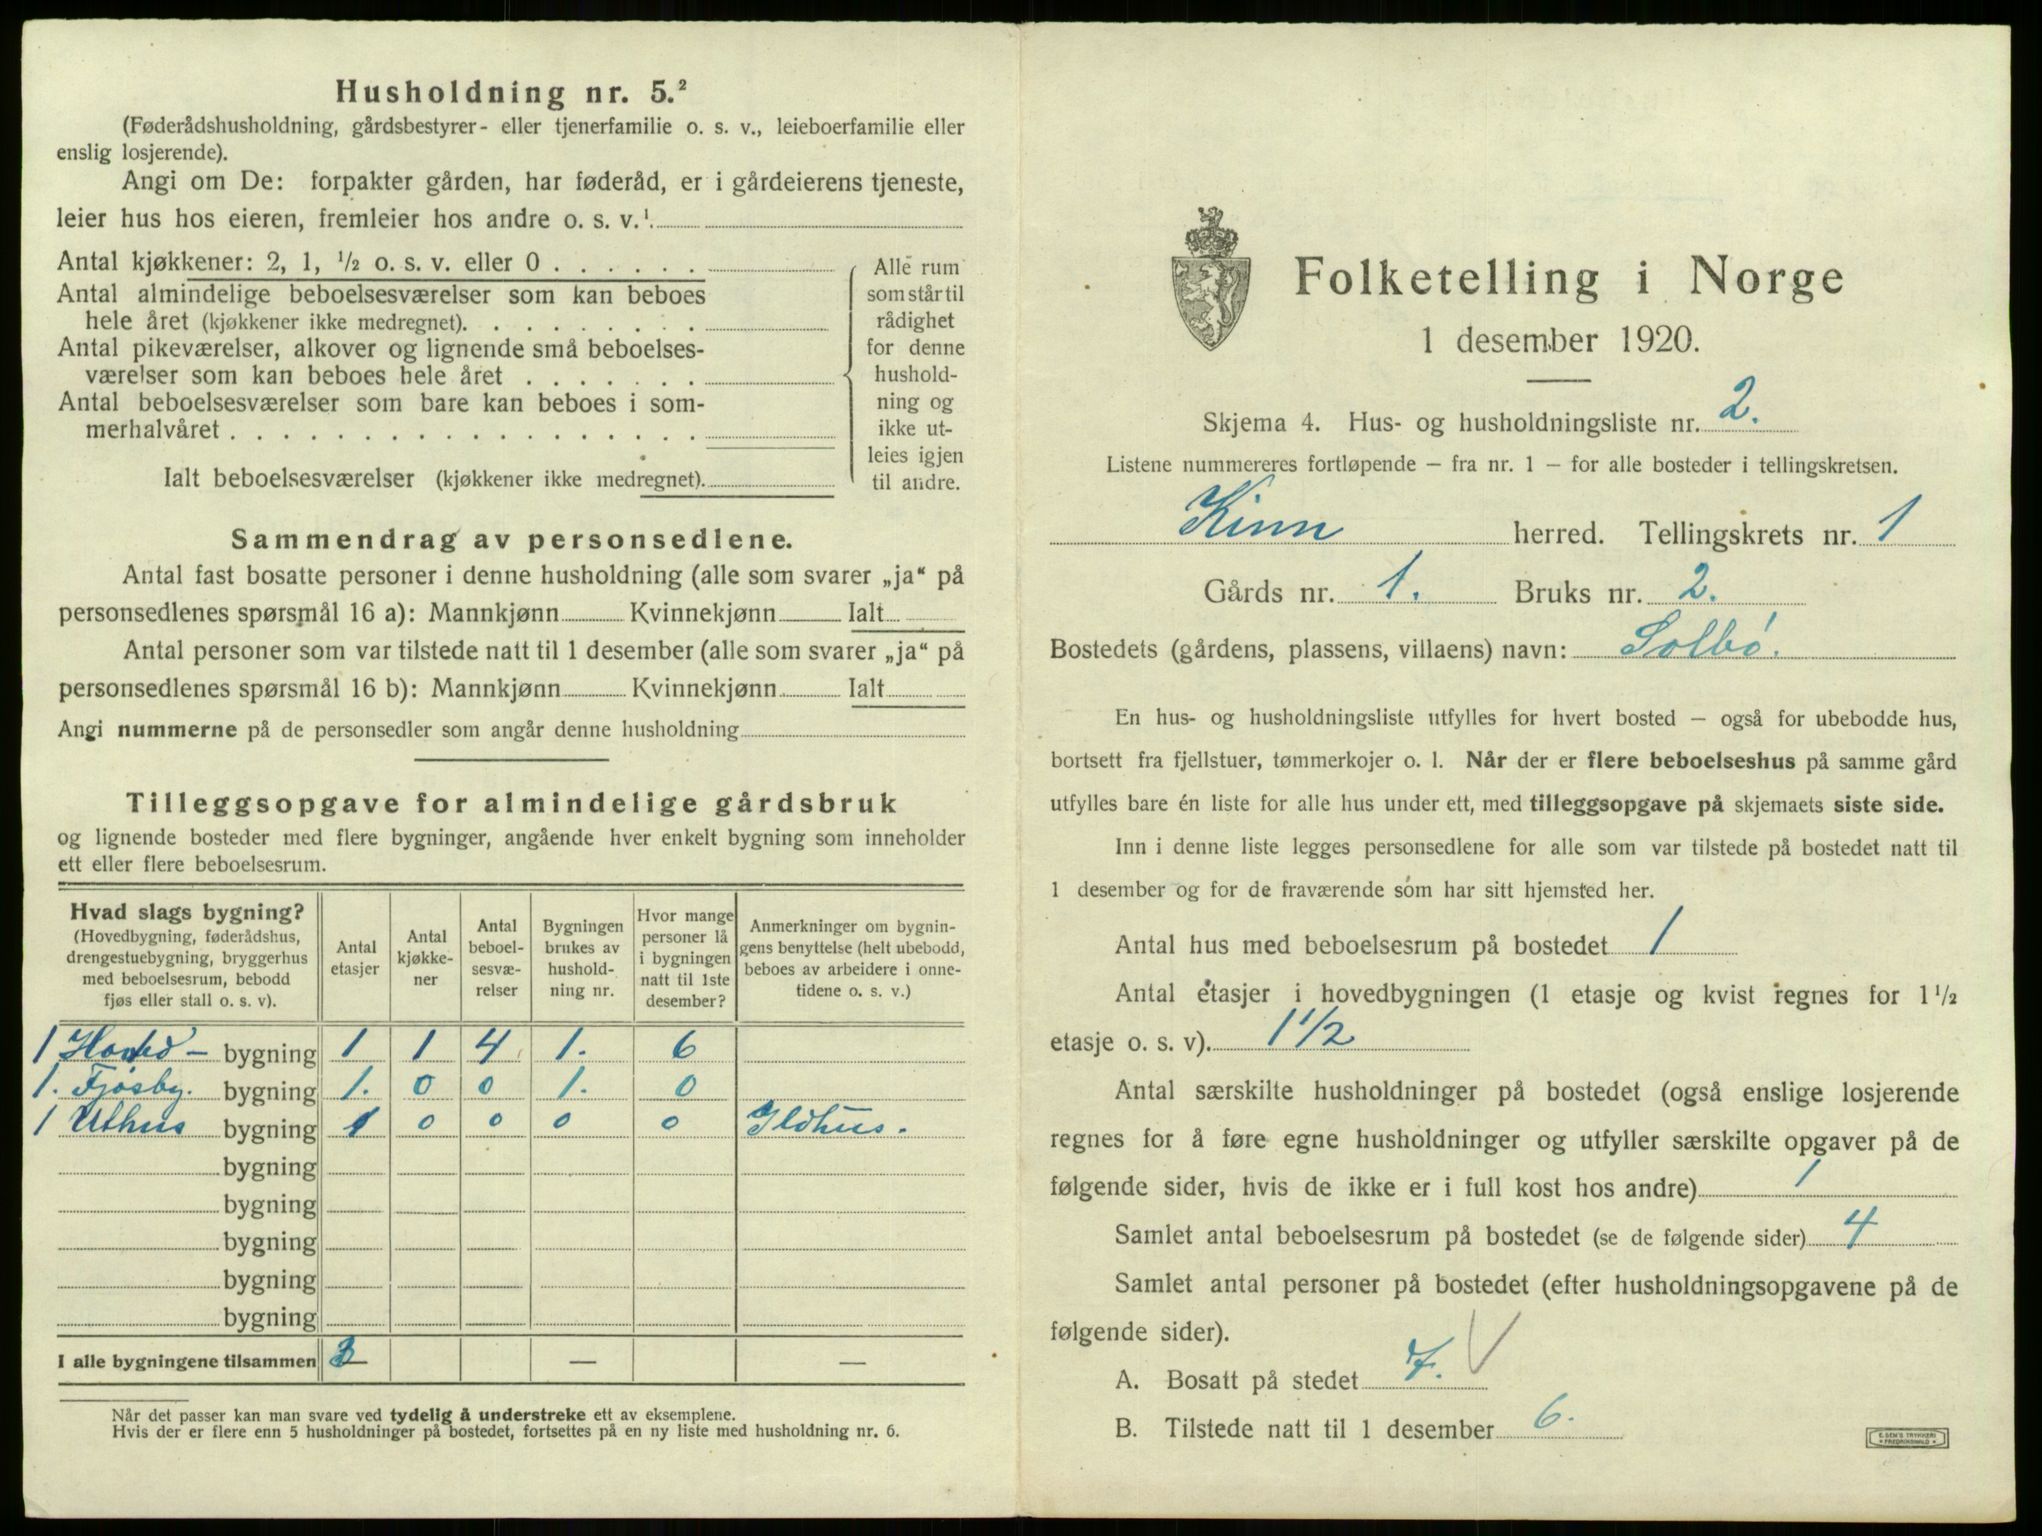 Husholdning nr. 5.²
(Føderådshusholdning, gårdsbestyrer- eller tjenerfamilie o. s. v., leieboerfamilie eller
enslig losjerende).
Angi om De: forpakter gården, har føderåd, er i gårdeierens tjeneste,
leier hus hos eieren, fremleier hos andre o. s. v.¹
Antal kjøkkener: 2, 1, ½ o. s. v. eller 0
Antal almindelige beboelsesværelser som kan beboes
hele året (kjøkkener ikke medregnet).
Antal pikeværelser, alkover og lignende små beboelses-
værelser som kan beboes hele året
Antal beboelsesværelser som bare kan beboes i som-
merhalvåret
Ialt beboelsesværelser (kjøkkener ikke medregnet).
Alle rum
som står til
rådighet
for denne
hushold-
ning og
ikke ut-
leies igjen
til andre.
Sammendrag av personsedlene.
Antal fast bosatte personer i denne husholdning (alle som svarer „ja“ på
personsedlenes spørsmål 16 a): Mannkjønn Kvinnekjønn Ialt
Antal personer som var tilstede natt til 1 desember (alle som svarer „ja“ på
personsedlenes spørsmål 16 b): Mannkjønn Kvinnekjønn Ialt
Angi nummerne på de personsedler som angår denne husholdning
Tilleggsopgave for almindelige gårdsbruk
og lignende bosteder med flere bygninger, angående hver enkelt bygning som inneholder
ett eller flere beboelsesrum.
Hvad slags bygning?
(Hovedbygning, føderådshus,
drengestuebygning, bryggerhus
med beboelsesrum, bebodd
fjøs eller stall o. s. v).
Antal
etasjer
Antal
kjøkke-
ner
Antal
beboel-
sesvæ-
relser
Bygningen
brukes av
hushold-
ning nr.
Hvor mange
personer lå
i bygningen
natt til 1ste
desember?
Anmerkninger om bygnin-
gens benyttelse (helt ubebodd,
beboes av arbeidere i onne-
tidene o. s. v.)
1 Hoved- bygning 1 1 4 1. 6
1. Fjøsby. bygning 1. 0 0 1. 0
1 Uthus bygning 1 0 0 0 0 Ildhus.
bygning
bygning
bygning
bygning
bygning
I alle bygningene tilsammen 3 — —
Når det passer kan man svare ved tydelig å understreke ett av eksemplene.
Hvis der er flere enn 5 husholdninger på bostedet, fortsettes på en ny liste med husholdning nr. 6.
Folketelling i Norge
1 desember 1920.
Skjema 4. Hus- og husholdningsliste nr. 2.
Listene nummereres fortløpende – fra nr. 1 – for alle bosteder i tellingskretsen.
Kinn herred. Tellingskrets nr. 1
Gårds nr. 1. Bruks nr. 2.
Bostedets (gårdens, plassens, villaens) navn: Solbø.
En hus- og husholdningsliste utfylles for hvert bosted – også for ubebodde hus,
bortsett fra fjellstuer, tømmerkojer o. l. Når der er flere beboelseshus på samme gård
utfylles bare én liste for alle hus under ett, med tilleggsopgave på skjemaets siste side.
Inn i denne liste legges personsedlene for alle som var tilstede på bostedet natt til
1 desember og for de fraværende som har sitt hjemsted her.
Antal hus med beboelsesrum på bostedet 1
Antal etasjer i hovedbygningen (1 etasje og kvist regnes for 1½
etasje o. s. v). 1 1/2
Antal særskilte husholdninger på bostedet (også enslige losjerende
regnes for å føre egne husholdninger og utfyller særskilte opgaver på de
følgende sider, hvis de ikke er i full kost hos andre) 1
Samlet antal beboelsesrum på bostedet (se de følgende sider) 4
Samlet antal personer på bostedet (efter husholdningsopgavene på de
følgende sider).
A. Bosatt på stedet 7. V
B. Tilstede natt til 1 desember 6.